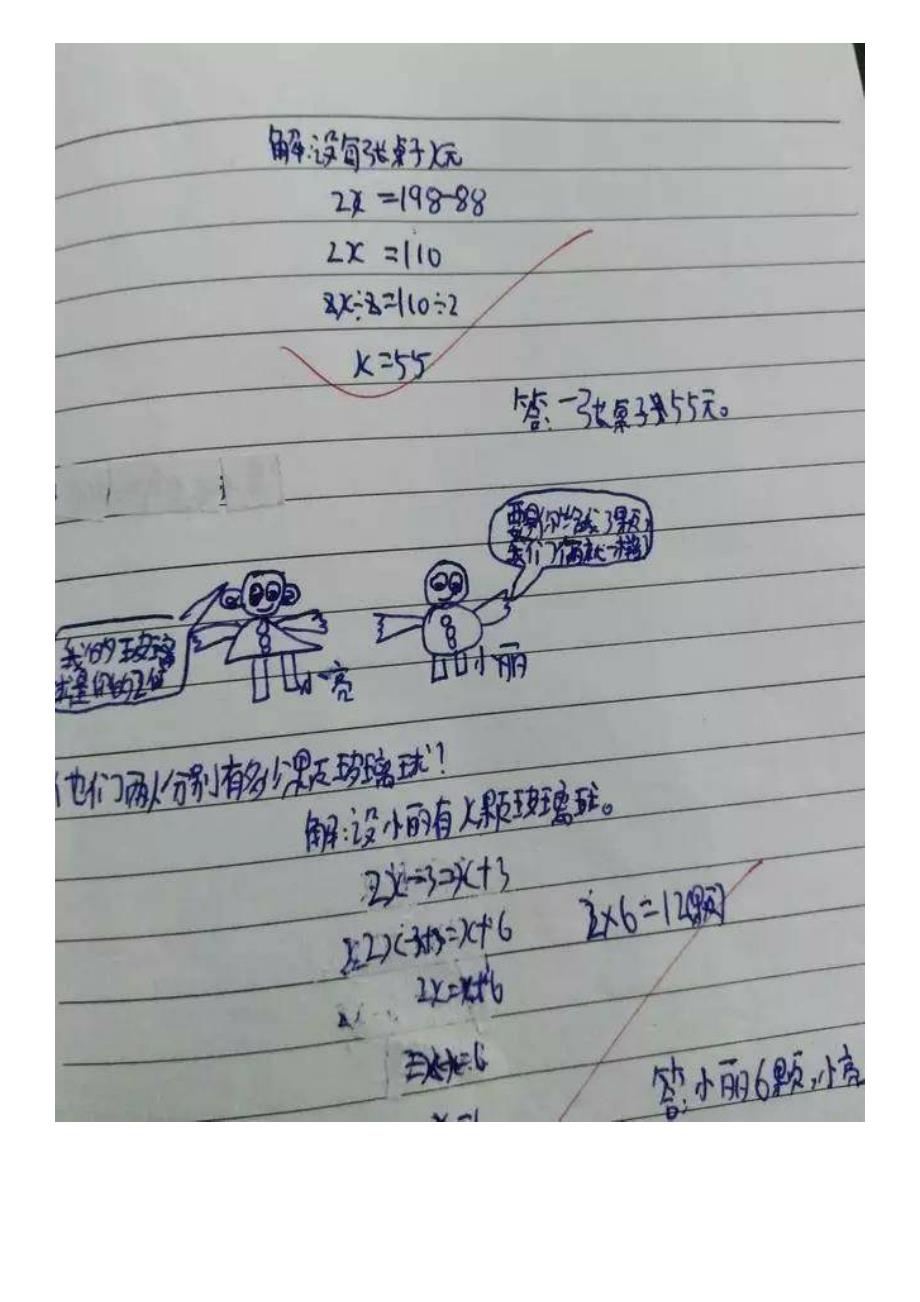 解:设每张桌子x元
2x=198-88
2x=110
2x÷2=110÷2
x=55
答:一张桌子是55元。
要是你给我3颗,
我们俩就一样多
我的玻璃
球是你的2倍
小亮
小丽
他们两人分别有多少颗玻璃球?
解:设小丽有x颗玻璃球。
2x-3=x+3
2x-3+3=x+6
2×6=12(颗)
2x=x+6
2x-x=6
答:小丽6颗,小亮